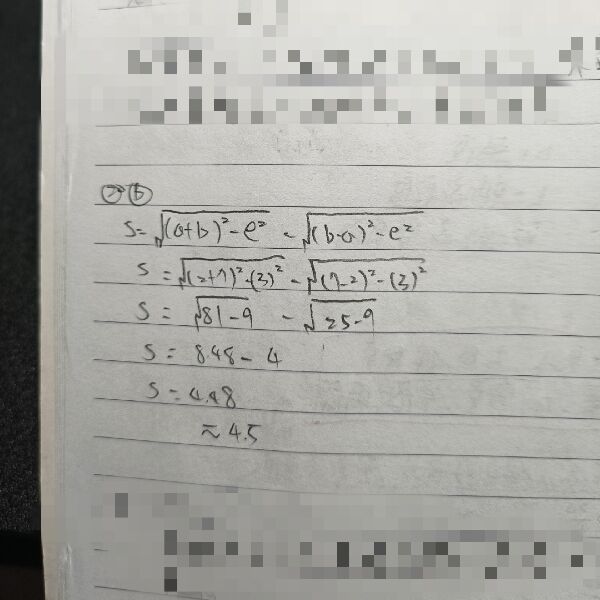 b
S = √(a+b)² - e² - √(b-a)² - e²
S = √(2+7)² - (3)² - √(7-2)² - (3)²
S = √81-9 - √25-9
S = 8.48 - 4
S = 4.48
≈ 4.5